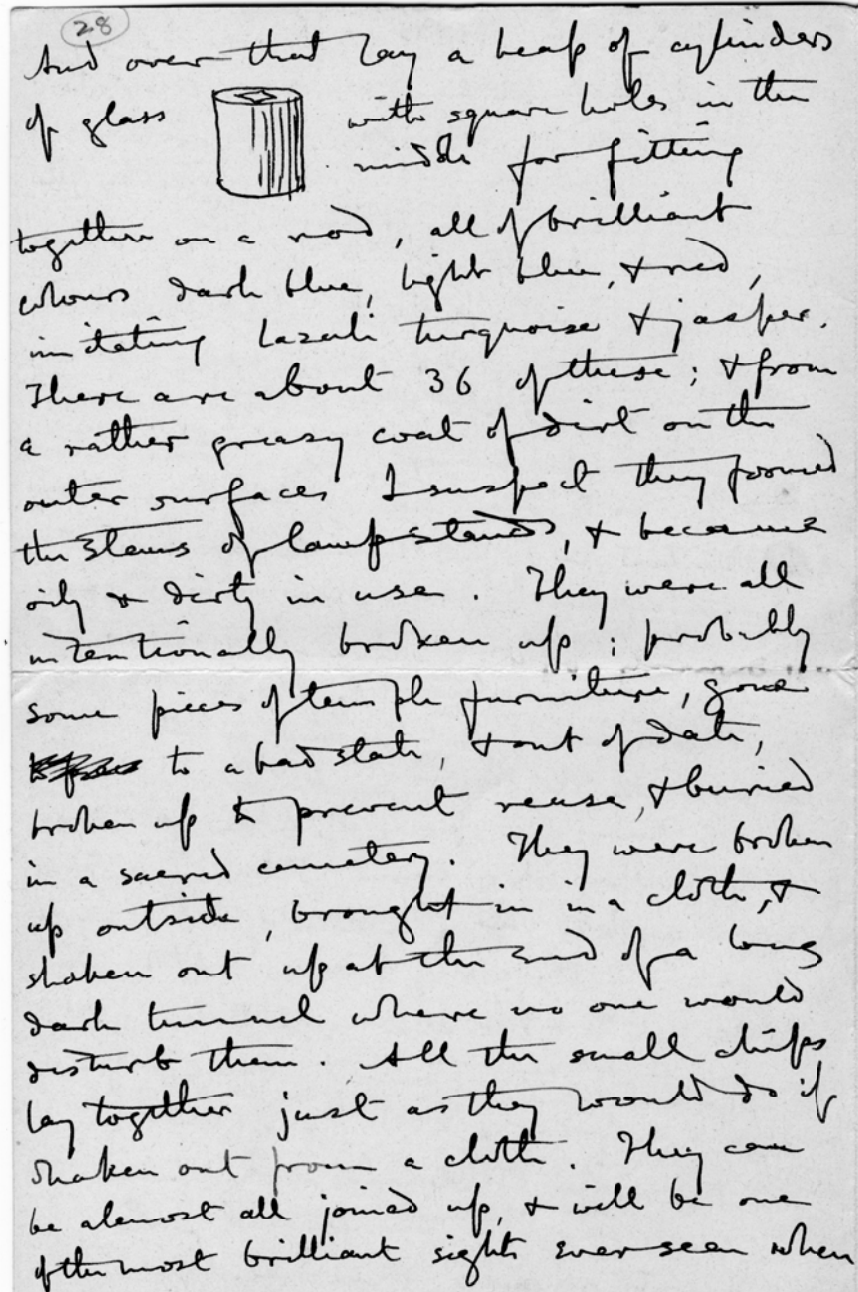 28
And over that lay a heap of cylinders
of glass with square holes in the
middle for fitting
together on a rod, all of brilliant
colours dark blue, light blue, & red,
imitating lazuli turquoise & jasper.
There are about 36 of these; & from
a rather greasy coat of dirt on the
outer surfaces I suspect they formed
the stems of lampstands, & became
oily & dirty in use. They were all
intentionally broken up; probably
some pieces of temple furniture, gone
to a bad state, & out of date,
broken up to prevent reuse, & buried
in a sacred cemetery. They were broken
up outside, brought in in a cloth, &
shaken out up at the end of a long
dark tunnel where no one would
disturb them. All the small chips
lay together just as they would do if
shaken out from a cloth. They can
be almost all joined up, & will be one
of the most brilliant sights ever seen when